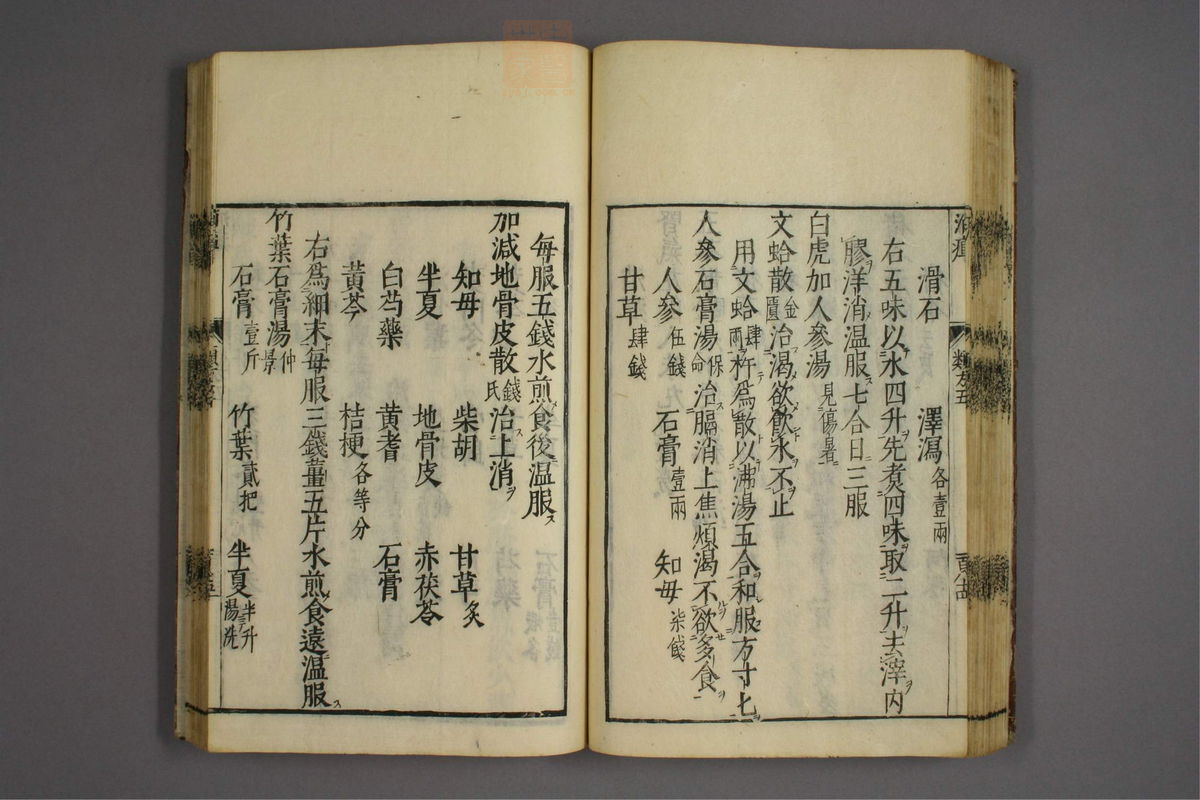 滑石 澤瀉各壹兩
右五味以水四升先煮四味取二升去滓内
膠洋消温服七合日三服
白虎加人參湯見傷暑
文蛤散金匱治渴欲飲水不止
用文蛤肆兩杵為散以沸湯五合和服方寸匕
人參石膏湯保命治膈消上焦煩渴不欲多食
人參伍錢 石膏壹兩 知母柒錢
甘草肆錢
每服五錢水煎食後温服
加減地骨皮散錢氏治上消
知母 柴胡 甘草炙
半夏 地骨皮 赤茯苓
白芍藥 黄耆 石膏
黄芩 桔梗各等分
右為細末每服三錢薑五片水煎食遠温服
竹葉石膏湯仲景
石膏壹斤 竹葉貳把 半夏半升湯洗